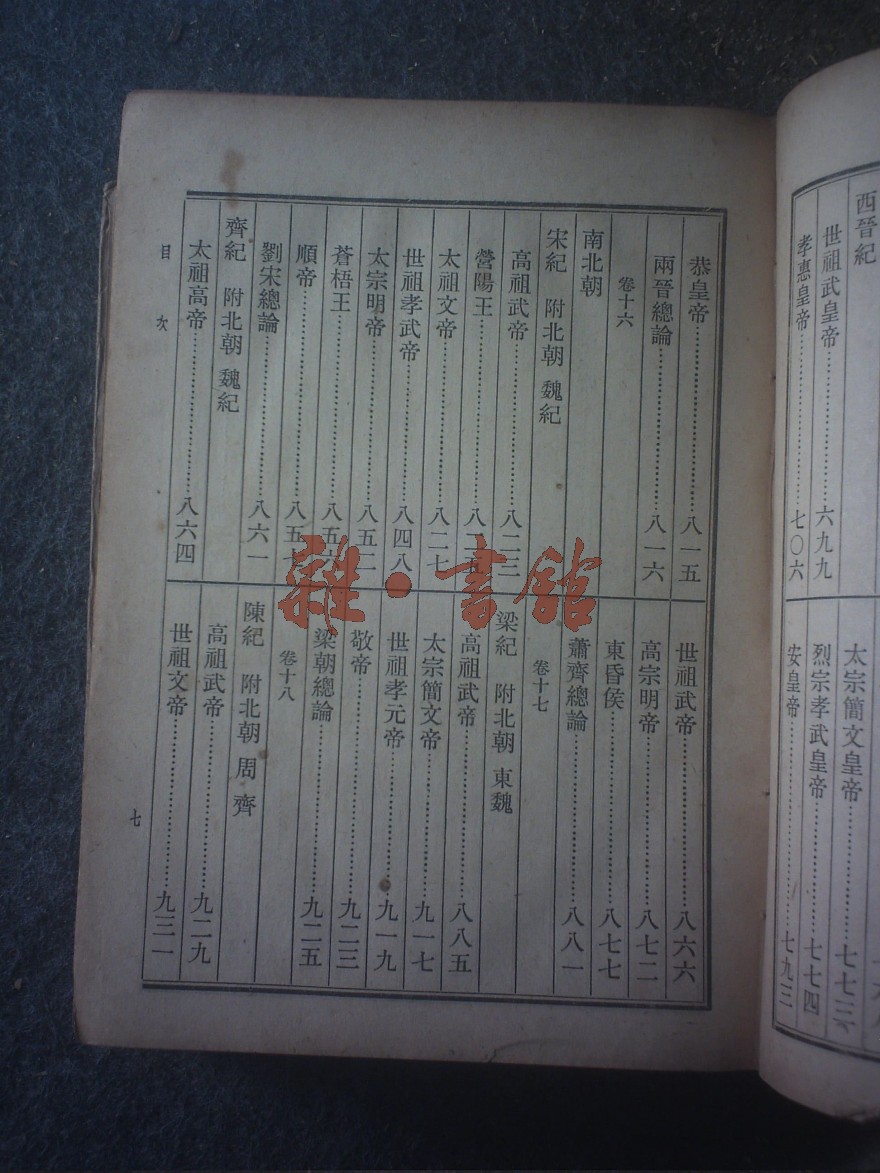 西晉紀
世祖武皇帝……六九九
孝惠皇帝……七〇六
太宗簡文皇帝……七七三
烈宗孝武皇帝……七七四
安皇帝……七九三
恭皇帝……八一五
兩晉總論……八一六
卷十六
南北朝
宋紀 附北朝 魏紀
高祖武帝……八二三
營陽王……八二五
太祖文帝……八二七
世祖孝武帝……八四八
太宗明帝……八五二
蒼梧王……八五六
順帝……八五
劉宋總論……八六一
齊紀 附北朝 魏紀
太祖高帝……八六四
世祖武帝……八六六
高宗明帝……八七二
東昏侯……八七七
蕭齊總論……八八一
卷十七
梁紀 附北朝 東魏
高祖武帝……八八五
太宗簡文帝……九一七
世祖孝元帝……九一九
敬帝……九二三
梁朝總論……九二五
卷十八
陳紀 附北朝 周 齊
高祖武帝……九二九
世祖文帝……九三一
目次
七
雜·書館